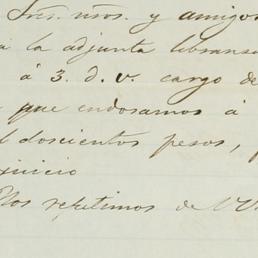 Tres. nros. y amigos
la adjunta libransa
á 3. d. v. cargo de
que endosamos á
doscientos pesos,
juicio
Nos repetimos de V